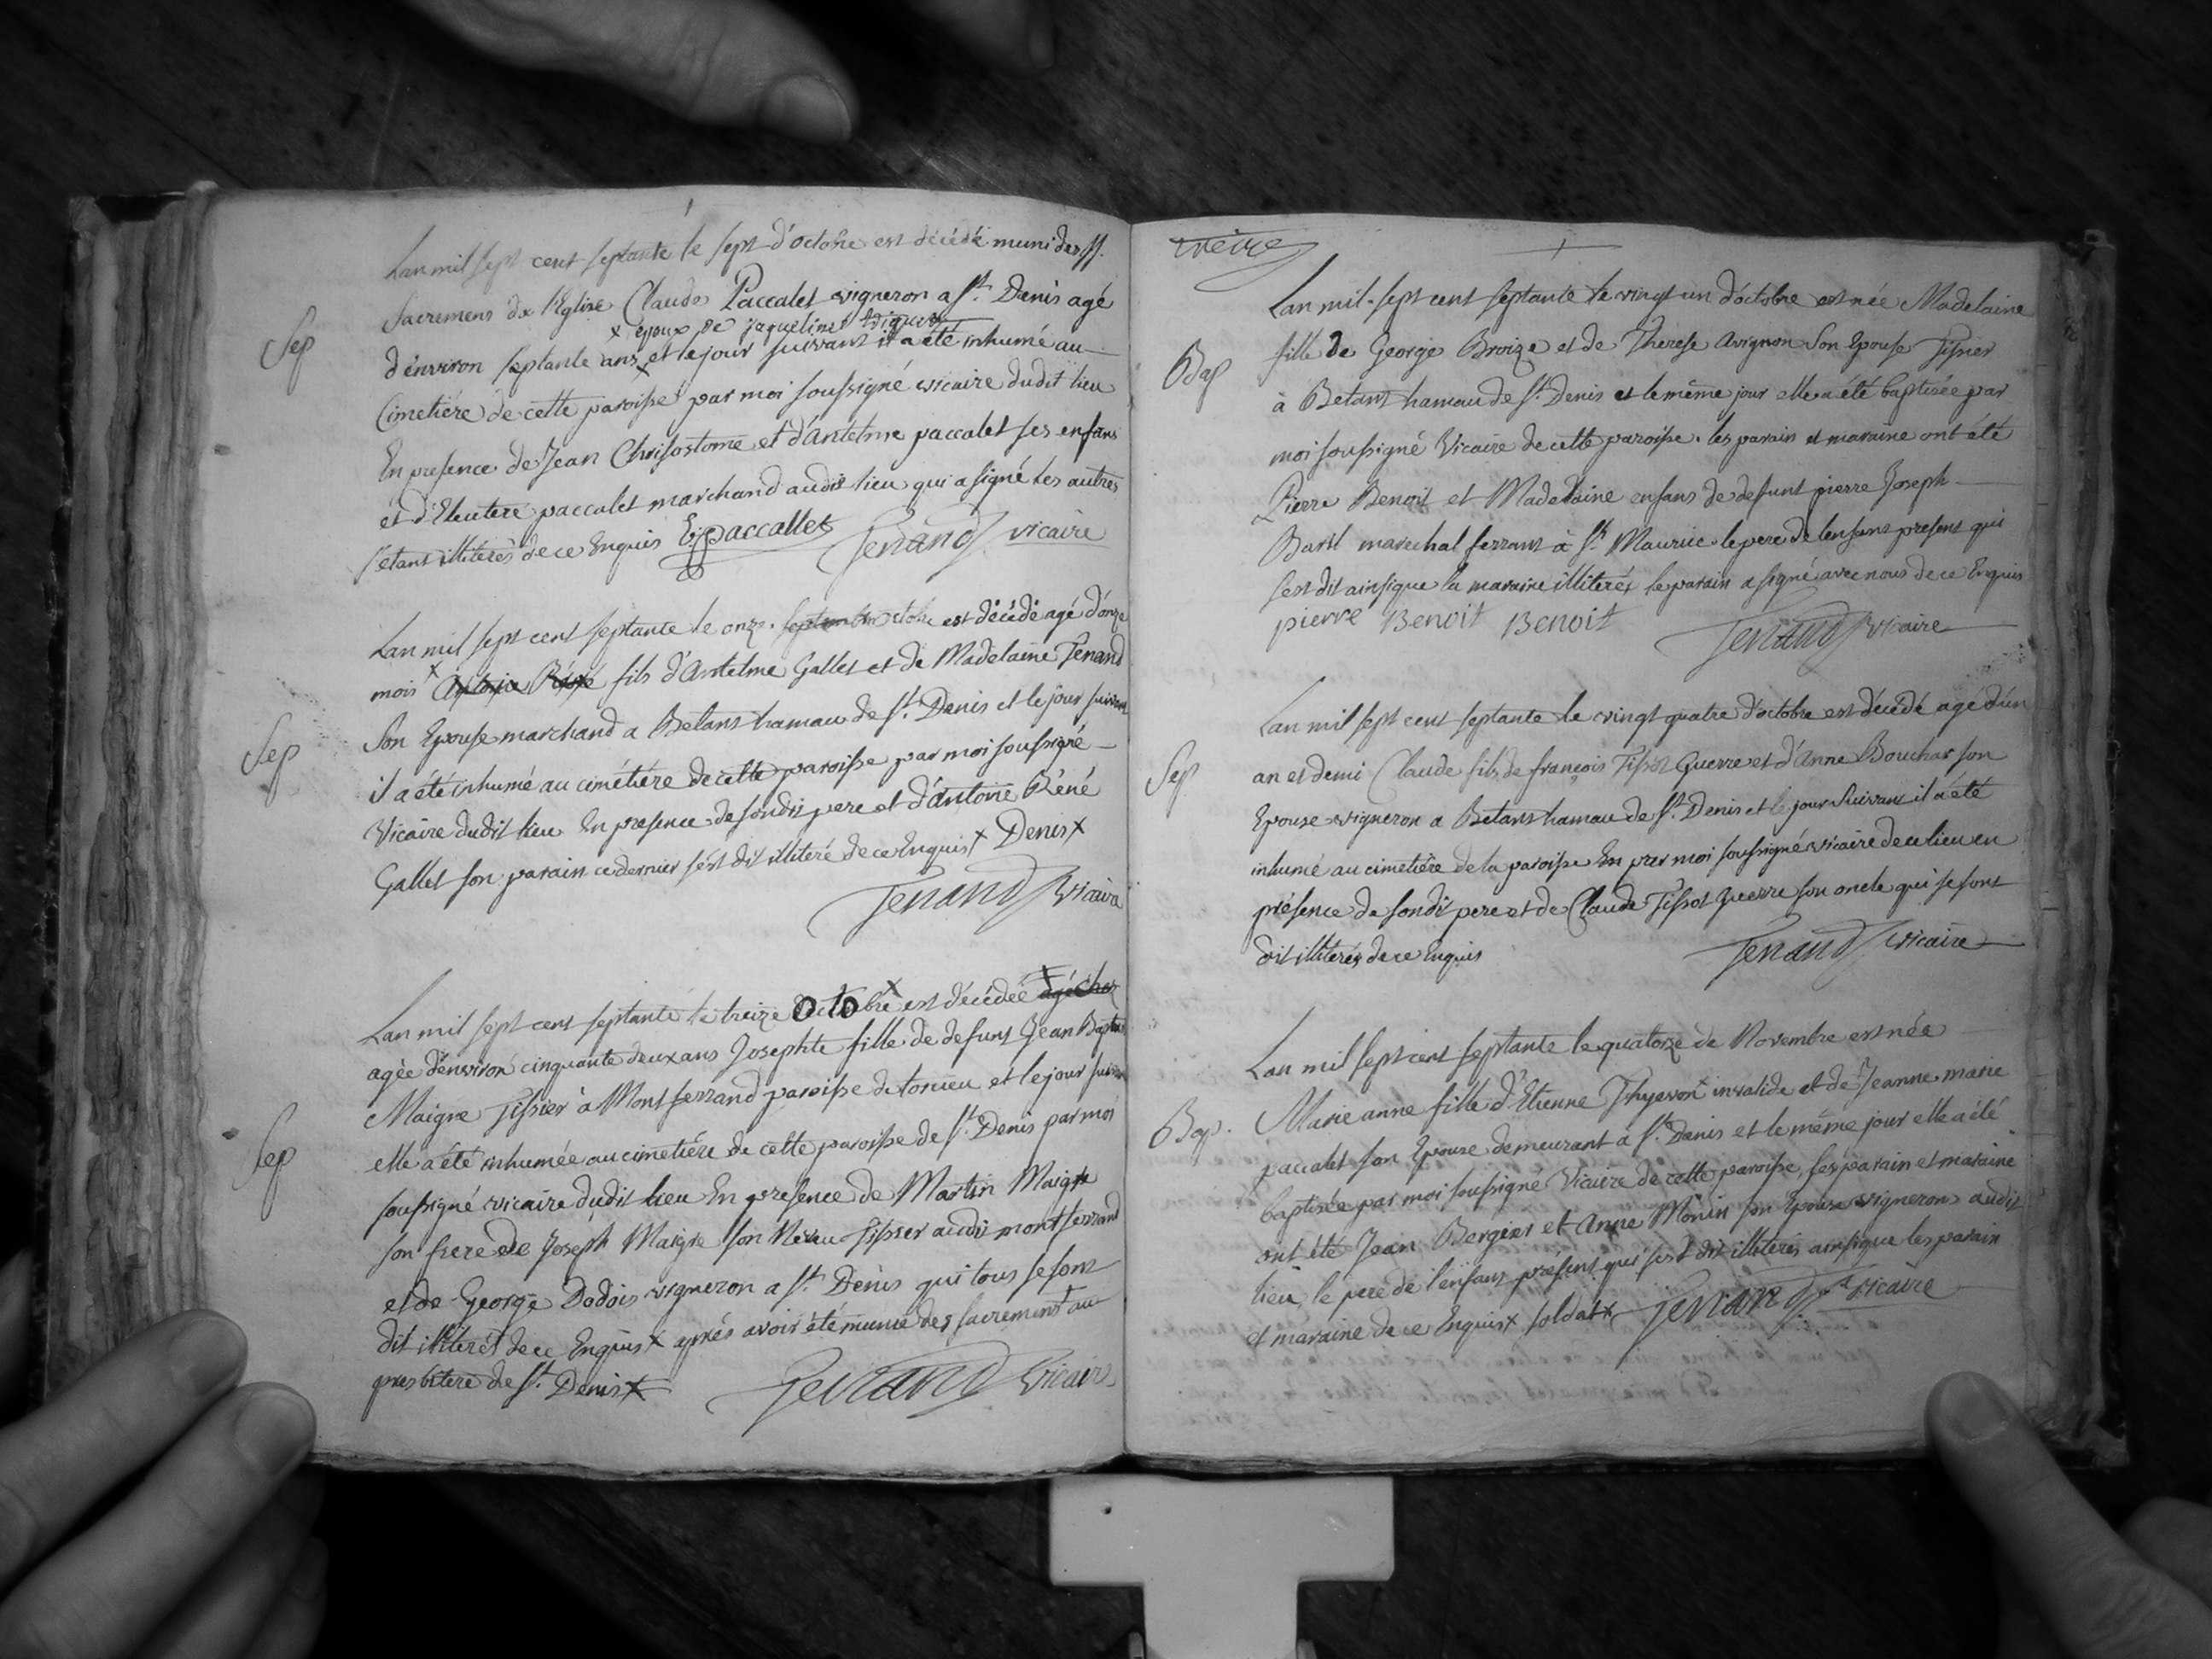 Lan mil sept cent septante le sept d'octobre est décédé muni des SS.
Sacremens de l'Eglise Claude Paccalet vigneron a St. Denis agé
x époux de jaqueline
Sep
d'énviron septante ans x et le jour suivant il a été inhumé au
Cimetiére de cette paroisse par moi soussigné vicaire dudit lieu
En presence de Jean Chrisostome et d'Antelme paccalet ses enfans
et d'Eleutere paccalet marchand audit lieu qui a signé les autres
s'etant illitérés de ce Enquis E paccallet Tenand vicaire
Lan mil sept cent septante le onze septembre octobre est décédé agé d'onze
mois x Antoine Réné fils d'Antelme Gallet et de Madelaine Tenand
Sep
Son Epouse marchand a Betans hamau de St. Denis et le jour suivant
il a été inhumé au cimétiére de cette paroisse par moi soussigné
Vicaire dudit lieu En presence de sondit pere et d'Antoine Réné
Gallet son parain ce dernier s'ést dit illiteré de ce Enquis x Denis x
Tenand Vicaire
Lan mil sept cent septante le treize Octobre x est décédée agé chez
agée d'énviron cinquante deux ans Josephte fille de defunt Jean Baptiste
Maigre Tissier à Montferrand paroisse de torcieu et le jour suivant
Sep
elle a été inhumée au cimetiére de cette paroisse de St. Denis par moi
soussigné vicaire dudit lieu En presence de Martin Maigre
son frere de Joseph Maigre son Neveu Tissier audit montferrand
et de George Dodois vigneron a St. Denis qui tous se sont
dit illiterés de ce Enquis x aprés avoir été munie des sacremens au
presbitere de St. Denis x Tenand Vicaire
Lan mil sept cent septante le vingt un d'octobre est née Madelaine
fille de George Broize et de Therese Avignon Son Epouse Tissier
Bap
à Betans hamau de St. Denis et le même jour elle a été baptisée par
moi soussigné Vicaire de cette paroisse. les parain et maraine ont été
Pierre Benoit et Madelaine enfans de defunt pierre Joseph
Baril marechal ferrant à St. Maurice le pere de l'enfant present qui
s'est dit ainsi que la maraine illiterés le parain a signé avec nous de ce Enquis
pierre Benoit Benoit Tenand Vicaire
Lan mil sept cent septante le vingt quatre d'octobre est décédé agé d'un
Sep
an et demi Claude fils de françois Tissot Guerre et d'Anne Bouchar son
Epouse vigneron a Betans hamau de St. Denis et le jour Suivant il a été
inhumé au cimetiére de la paroisse En par moi soussigné vicaire de ce lieu en
présence de sondit pere et de Claude Tissot Guerre son oncle qui se sont
dit illiterés de ce Enquis Tenand Vicaire
Lan mil sept cent septante le quatorze de Novembre est née
Bap.
Marie anne fille d'Etienne Thyevon x invalide et de Jeanne marie
paccalet son Epouse demeurant à St. Denis et le même jour elle a été
baptisée par moi soussigné Vicaire de cette paroisse, ses parain et maraine
ont été Jean Bergier et Anne Monin son Epouse vignerons audit
lieu, le pere de l'enfant présent qui s'est dit illiterés ainsi que les parain
et maraine de ce Enquis x soldat x Tenand Vicaire